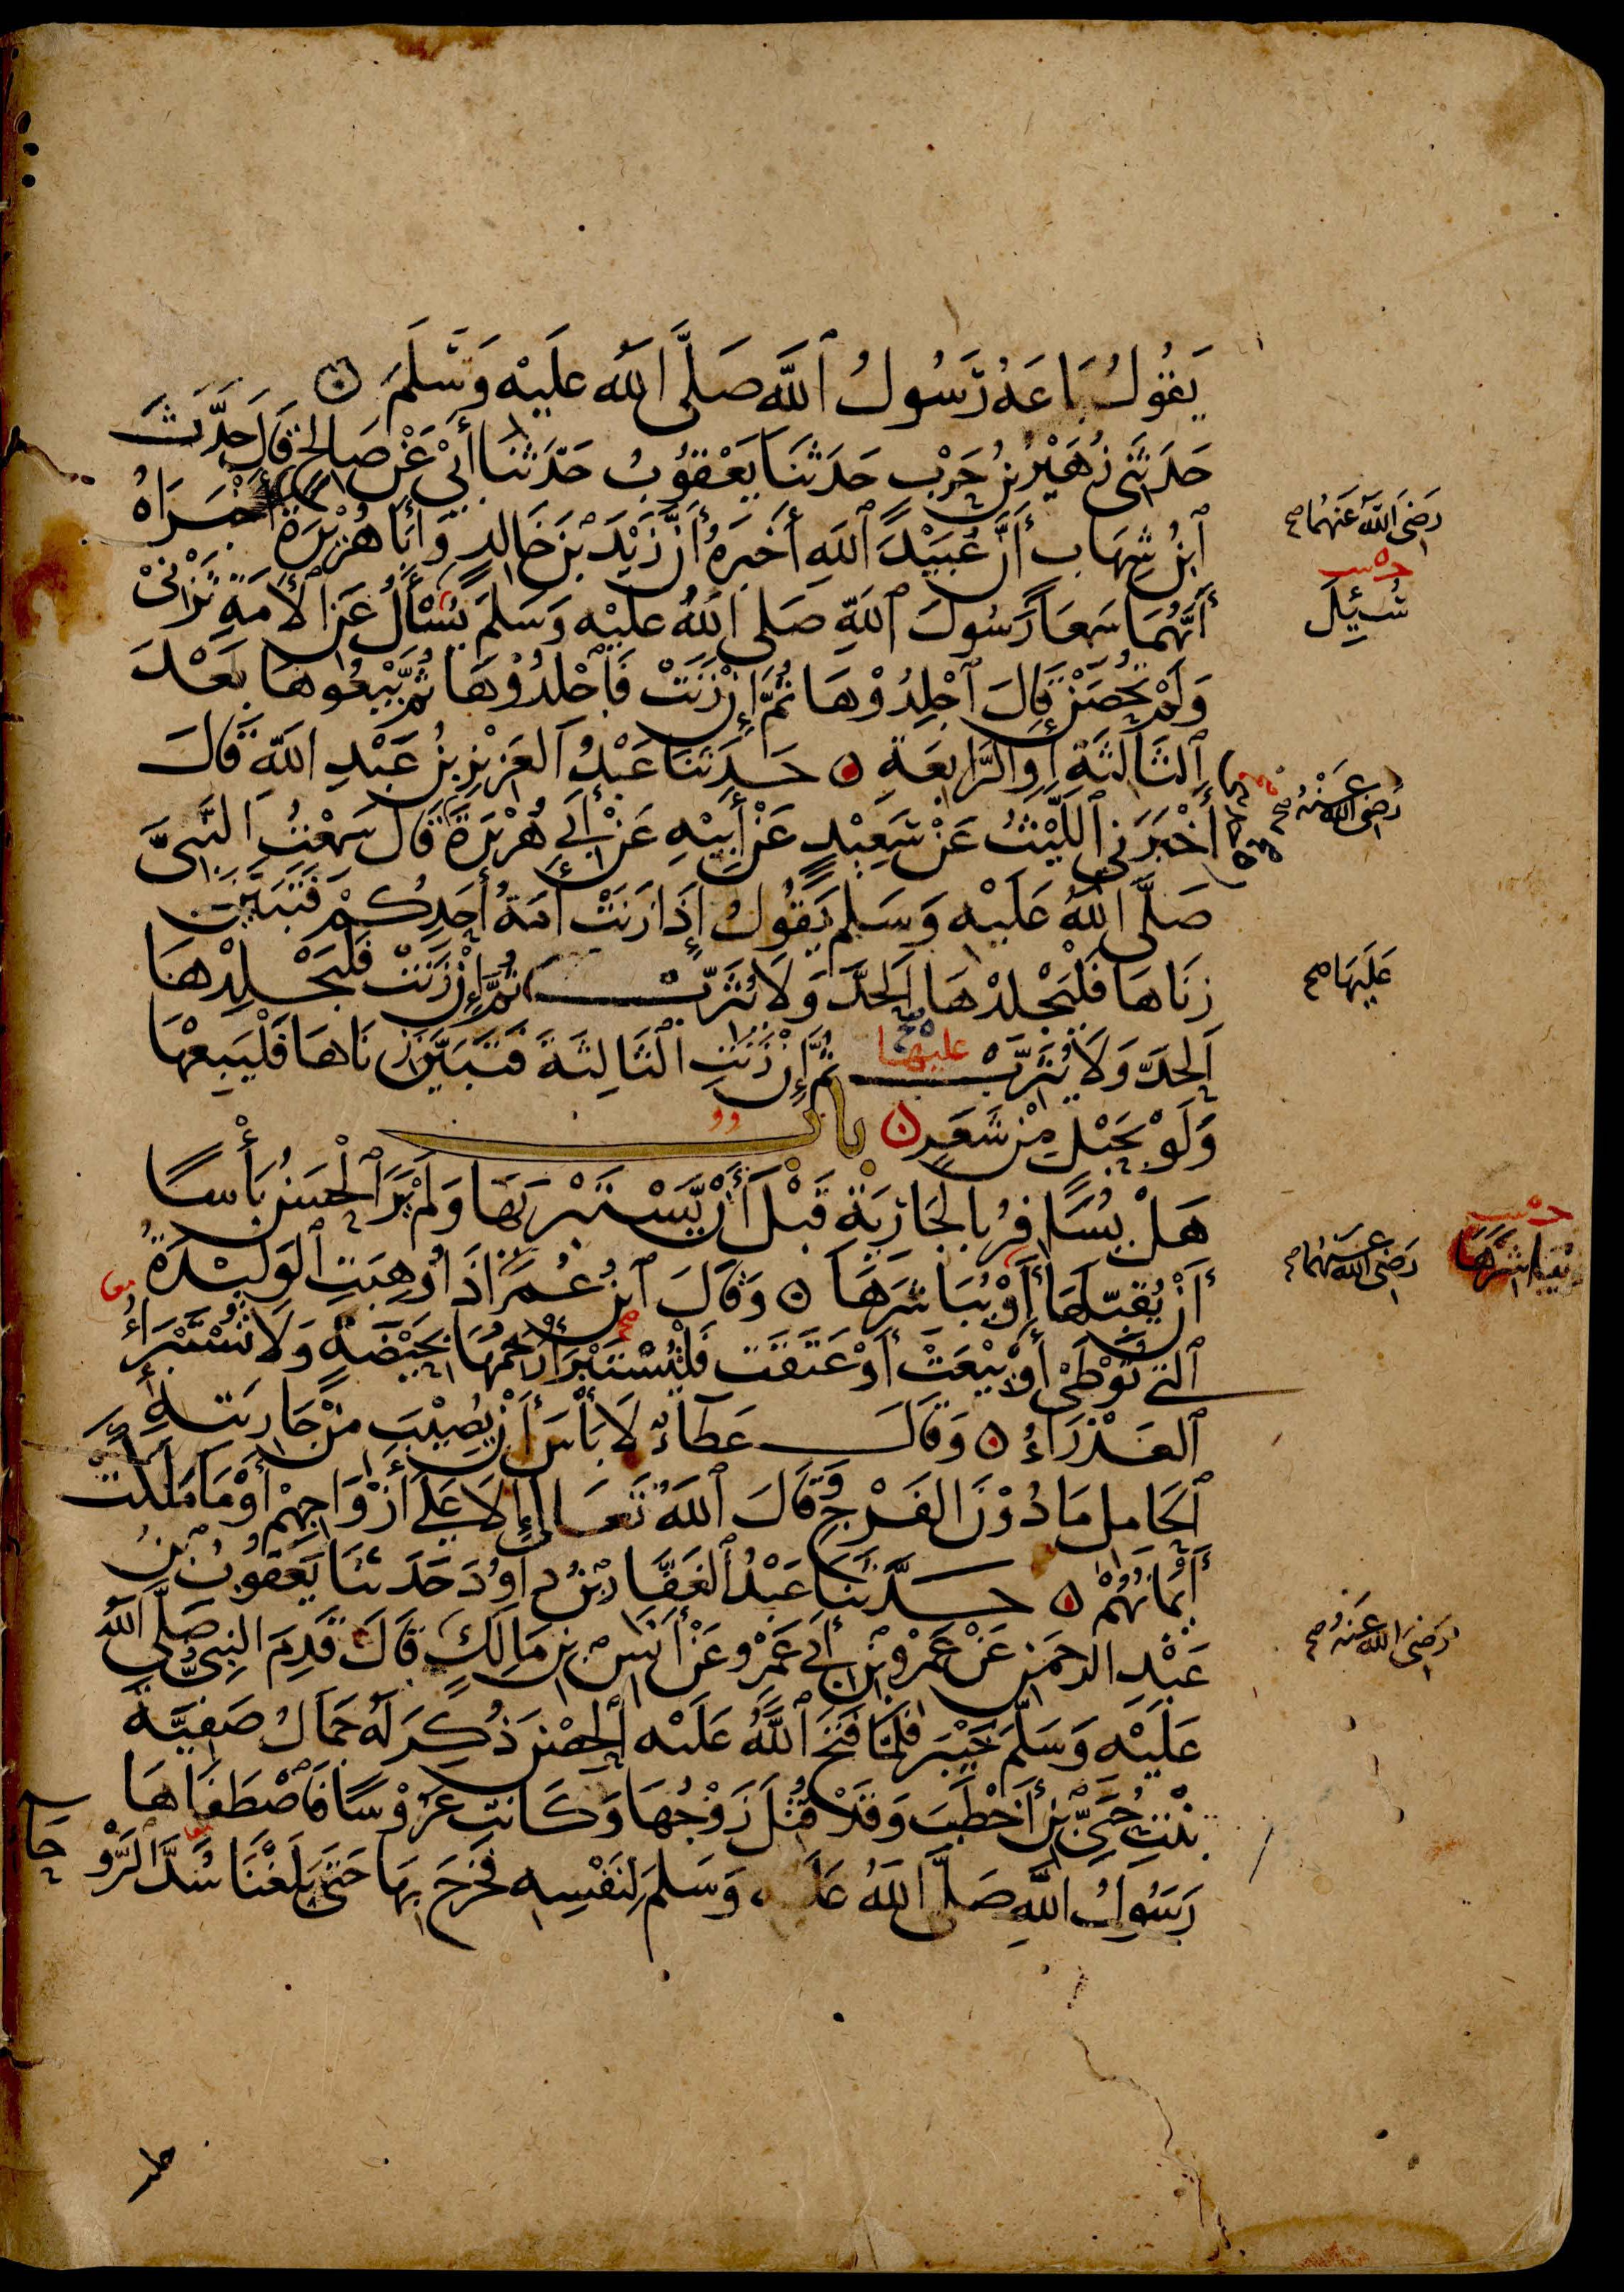 يَقُولُ بَاعَهُ رَسُولُ ٱللَّهِ صَلَّى اللَّهُ عَلَيْهِ وَسَلَّمَ ۝
حَدَّثَنِي زُهَيْرُ بْنُ حَرْبٍ حَدَّثَنَا يَعْقُوبُ حَدَّثَنَا أَبِي عَنْ صَالِحٍ قَالَ حَدَّثَ
ٱبْنُ شِهَابٍ أَنَّ عُبَيْدَ ٱللَّهِ أَخْبَرَهُ أَنَّ زَيْدَ بْنَ خَالِدٍ وَأَبَا هُرَيْرَةَ أَخْبَرَاهُ
رَضِيَ اللَّهُ عَنْهُمَا صح
أَنَّهُمَا سَمِعَا رَسُولَ ٱللَّهِ صَلَّى اللَّهُ عَلَيْهِ وَسَلَّمَ يُسْأَلُ عَنِ الْأَمَةِ تَزْنِي
سُئِلَ
وَلَمْ تُحْصَنْ قَالَ ٱجْلِدُوهَا ثُمَّ إِنْ زَنَتْ فَٱجْلِدُوهَا ثُمَّ بِيعُوهَا بَعْدَ
ٱلثَّالِثَةِ أَوِ الرَّابِعَةِ ۝ حَدَّثَنَا عَبْدُ ٱلْعَزِيزِ بْنُ عَبْدِ اللَّهِ قَالَ
أَخْبَرَنِي ٱللَّيْثُ عَنْ سَعِيدٍ عَنْ أَبِيهِ عَنْ أَبِي هُرَيْرَةَ قَالَ سَمِعْتُ النَّبِيَّ
رَضِيَ اللَّهُ عَنْهُ صح
صَلَّى اللَّهُ عَلَيْهِ وَسَلَّمَ يَقُولُ إِذَا زَنَتْ أَمَةُ أَحَدِكُمْ فَتَبَيَّنَ
زِنَاهَا فَلْيَجْلِدْهَا ٱلْحَدَّ وَلَا يُثَرِّبْ ثُمَّ إِنْ زَنَتْ فَلْيَجْلِدْهَا
عَلَيْهَا صح
ٱلْحَدَّ وَلَا يُثَرِّبْ ثُمَّ إِنْ زَنَتِ الثَّالِثَةَ فَتَبَيَّنَ زِنَاهَا فَلْيَبِعْهَا
عليها
وَلَوْ بِحَبْلٍ مِنْ شَعَرٍ ۝ بَابٌ
هَلْ يُسَافِرُ بِالْجَارِيَةِ قَبْلَ أَنْ يَسْتَبْرِئَهَا وَلَمْ يَرَ ٱلْحَسَنُ بَأْسًا
أَنْ يُقَبِّلَهَا أَوْ يُبَاشِرَهَا ۝ وَقَالَ ٱبْنُ عُمَرَ إِذَا وُهِبَتِ ٱلْوَلِيدَةُ
رَضِيَ اللَّهُ عَنْهُمَا صح
ٱلَّتِي تُوطَئُ أَوْ بِيعَتْ أَوْ عَتَقَتْ فَلْيُسْتَبْرَأْ رَحِمُهَا بِحَيْضَةٍ وَلَا تُسْتَبْرَأُ
ٱلْعَذْرَاءُ ۝ وَقَالَ عَطَاءٌ لَا بَأْسَ أَنْ يُصِيبَ مِنْ جَارِيَتِهِ
ٱلْحَامِلِ مَا دُونَ الْفَرْجِ وَقَالَ ٱللَّهُ تَعَالَى إِلَّا عَلَى أَزْوَاجِهِمْ أَوْ مَا مَلَكَتْ
أَيْمَانُهُمْ ۝ حَدَّثَنَا عَبْدُ ٱلْغَفَّارِ بْنُ دَاوُدَ حَدَّثَنَا يَعْقُوبُ بْنُ
عَبْدِ الرَّحْمَنِ عَنْ عَمْرِو بْنِ أَبِي عَمْرٍو عَنْ أَنَسِ بْنِ مَالِكٍ قَالَ قَدِمَ النَّبِيُّ صَلَّى اللَّهُ
رَضِيَ اللَّهُ عَنْهُ صح
عَلَيْهِ وَسَلَّمَ خَيْبَرَ فَلَمَّا فَتَحَ ٱللَّهُ عَلَيْهِ ٱلْحِصْنَ ذُكِرَ لَهُ جَمَالُ صَفِيَّةَ
بِنْتِ حُيَيِّ بْنِ أَخْطَبَ وَقَدْ قُتِلَ زَوْجُهَا وَكَانَتْ عَرُوسًا فَٱصْطَفَاهَا
رَسُولُ اللَّهِ صَلَّى اللَّهُ عَلَيْهِ وَسَلَّمَ لِنَفْسِهِ فَخَرَجَ بِهَا حَتَّى بَلَغْنَا سَدَّ ٱلرَّوْ
حَاءِ